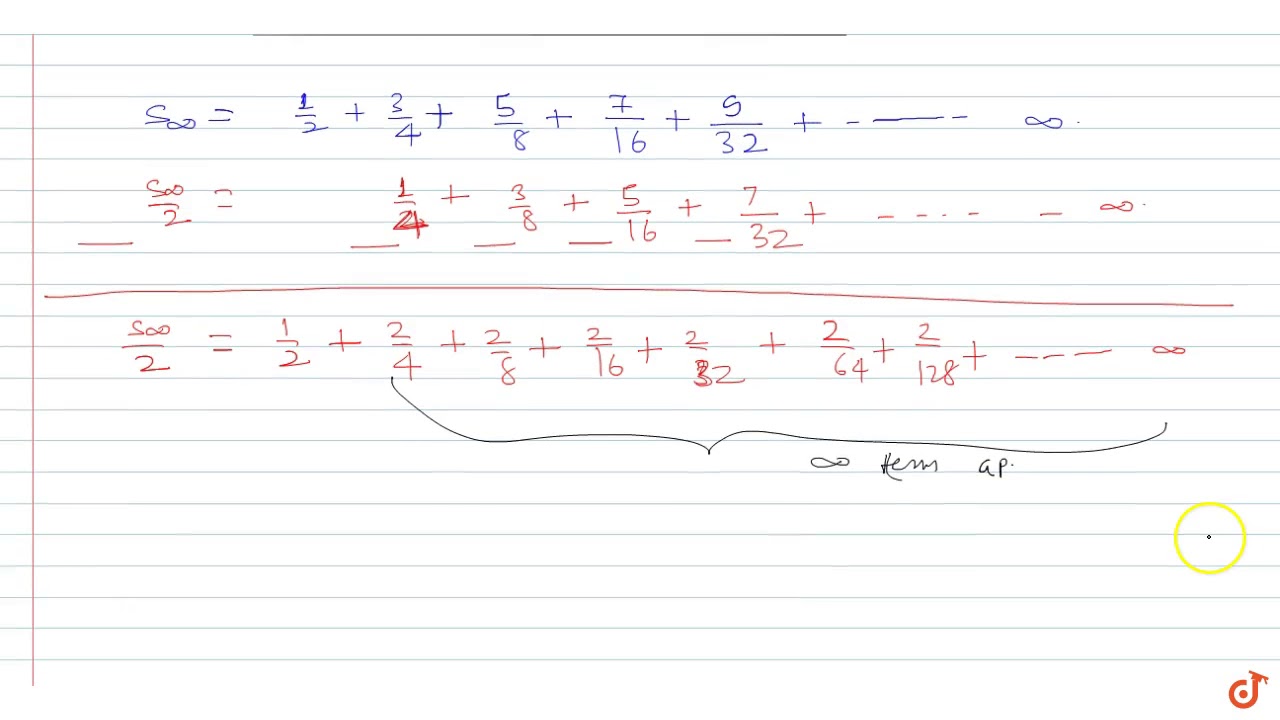 S∞ = 1/2 + 3/4 + 5/8 + 7/16 + 9/32 + ------- ∞.
S∞/2 = 1/4 + 3/8 + 5/16 + 7/32 + ---- - ∞.
S∞/2 = 1/2 + 2/4 + 2/8 + 2/16 + 2/32 + 2/64 + 2/128 + ---- ∞
∞ term ap.